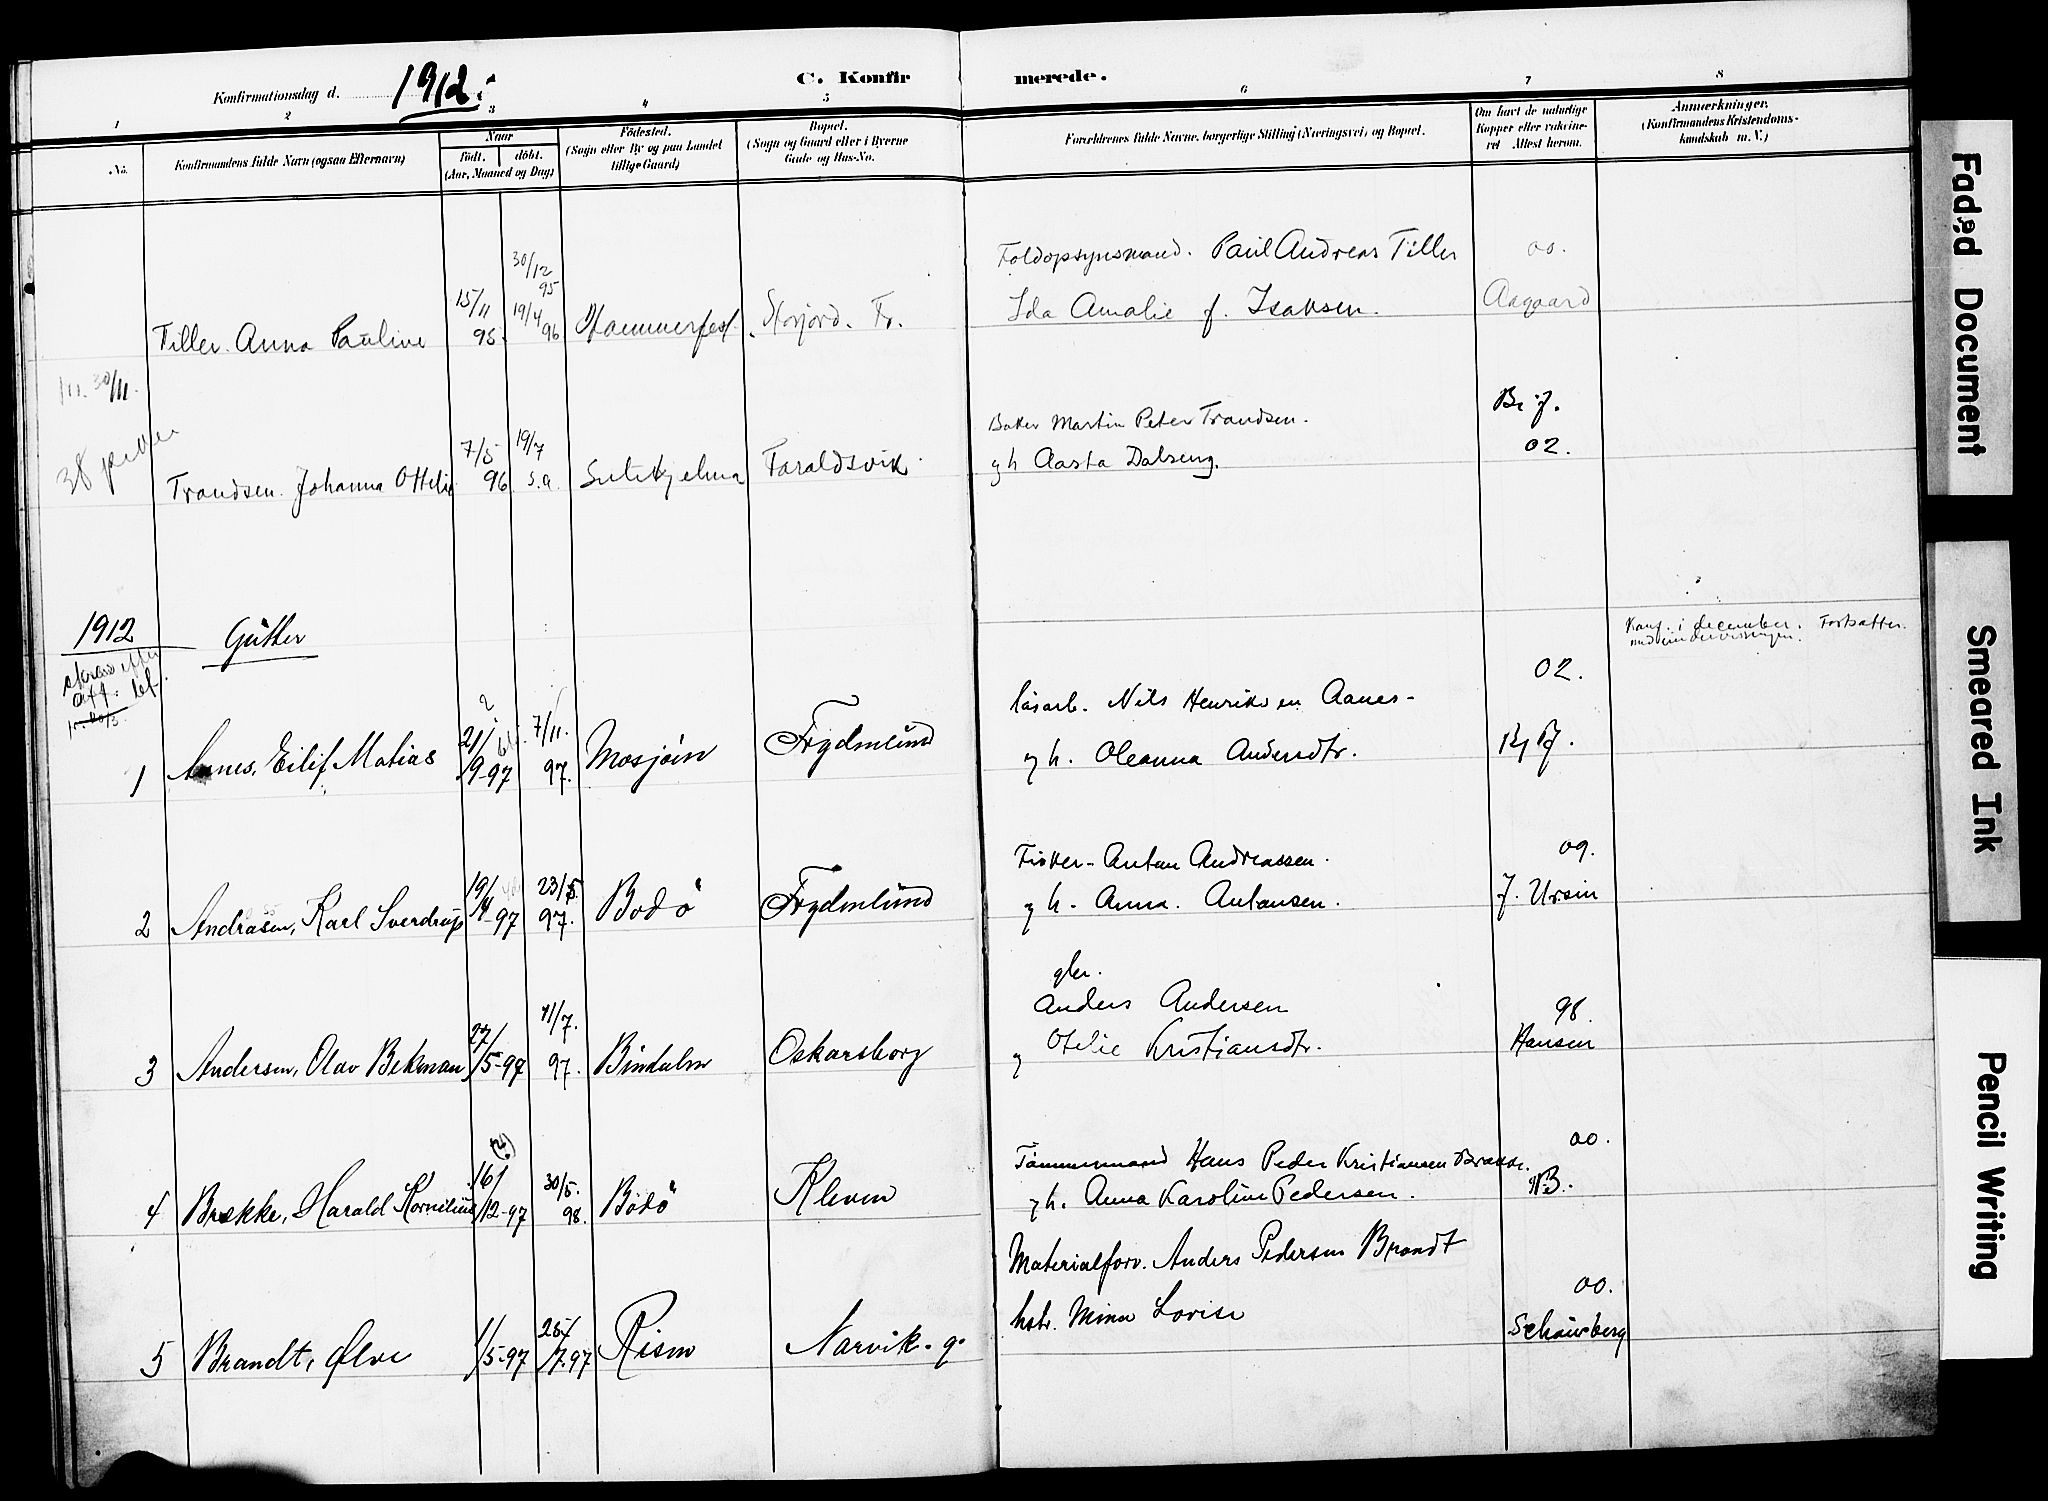 Konfirmationsdag d. 1912.
C. Konfirmerede.
1 2 3 4 5 6 7 8
No.
Konfirmandens fulde Navn (ogsaa Efternavn)
Naar
født. døbt.
(Aar, Maaned og Dag)
Fødested.
(Sogn eller By og paa Landet
tillige Gaard)
Bopæl.
(Sogn og Gaard eller i Byerne
Gade og Hus-No.
Forældrenes fulde Navne, borgerlige Stilling (Næringsvei) og Bopæl.
Om havt de naturlige
Kopper eller vakcine-
ret Attest herom.
Anmærkninger.
(Konfirmandens Kristendoms-
kundskab m. V.)
Tiller Anna Pauline
15/11 95
30/12 95
19/4 96
Hammerfest
Storjord. Fr.
Toldopsynsmand. Paul Andreas Tiller
Ida Amalie f. Isaksen.
00.
Aagaard
30/11.
38 piker
Trondsen. Johanna Ottelie
7/5 96
19/7 s.a.
Sulitjelma
Taraldsvik
Baker Martin Peter Trondsen.
g h Aasta Dalseng.
02.
1912
Gutter
Konf. i december. Fortsatter.
1
Aanes, Eilif Matias
21/9-97
7/11. 97.
Mosjøen
Frydenlund
løsarb. Nils Henriksen Aanes-
g h. Oleanna Andersdtr.
02.
2
Andrasen, Karl Sverdrup
19/4 97
23/5. 97.
Bodø
Frydenlund
Fisker - Anton Andreassen.
g h. Anna. Antonsen.
09.
J. Ursin
3
Andersen, Olav Bekman
27/5-97
11/7. 97.
Bindalen
Oskarsborg
gbr.
Anders Andersen
g Otelie Kristiansdtr.
98.
Hansen
4
Brekke, Harald Kornelius
16/12-97
30/5. 98.
Bodø
Kleven
Tømmermand Hans Peder Kristiansen Brekke.
g h. Anna Karoline Pedersen.
00.
5
Brandt, Ølve
1/5-97
25/7.97
Risør
Narvik. g.
Materialforv. Anders Pedersen Brandt
hstr. Mina Lovise
00.
Schawberg
Faded Document
Smeared Ink
Pencil Writing